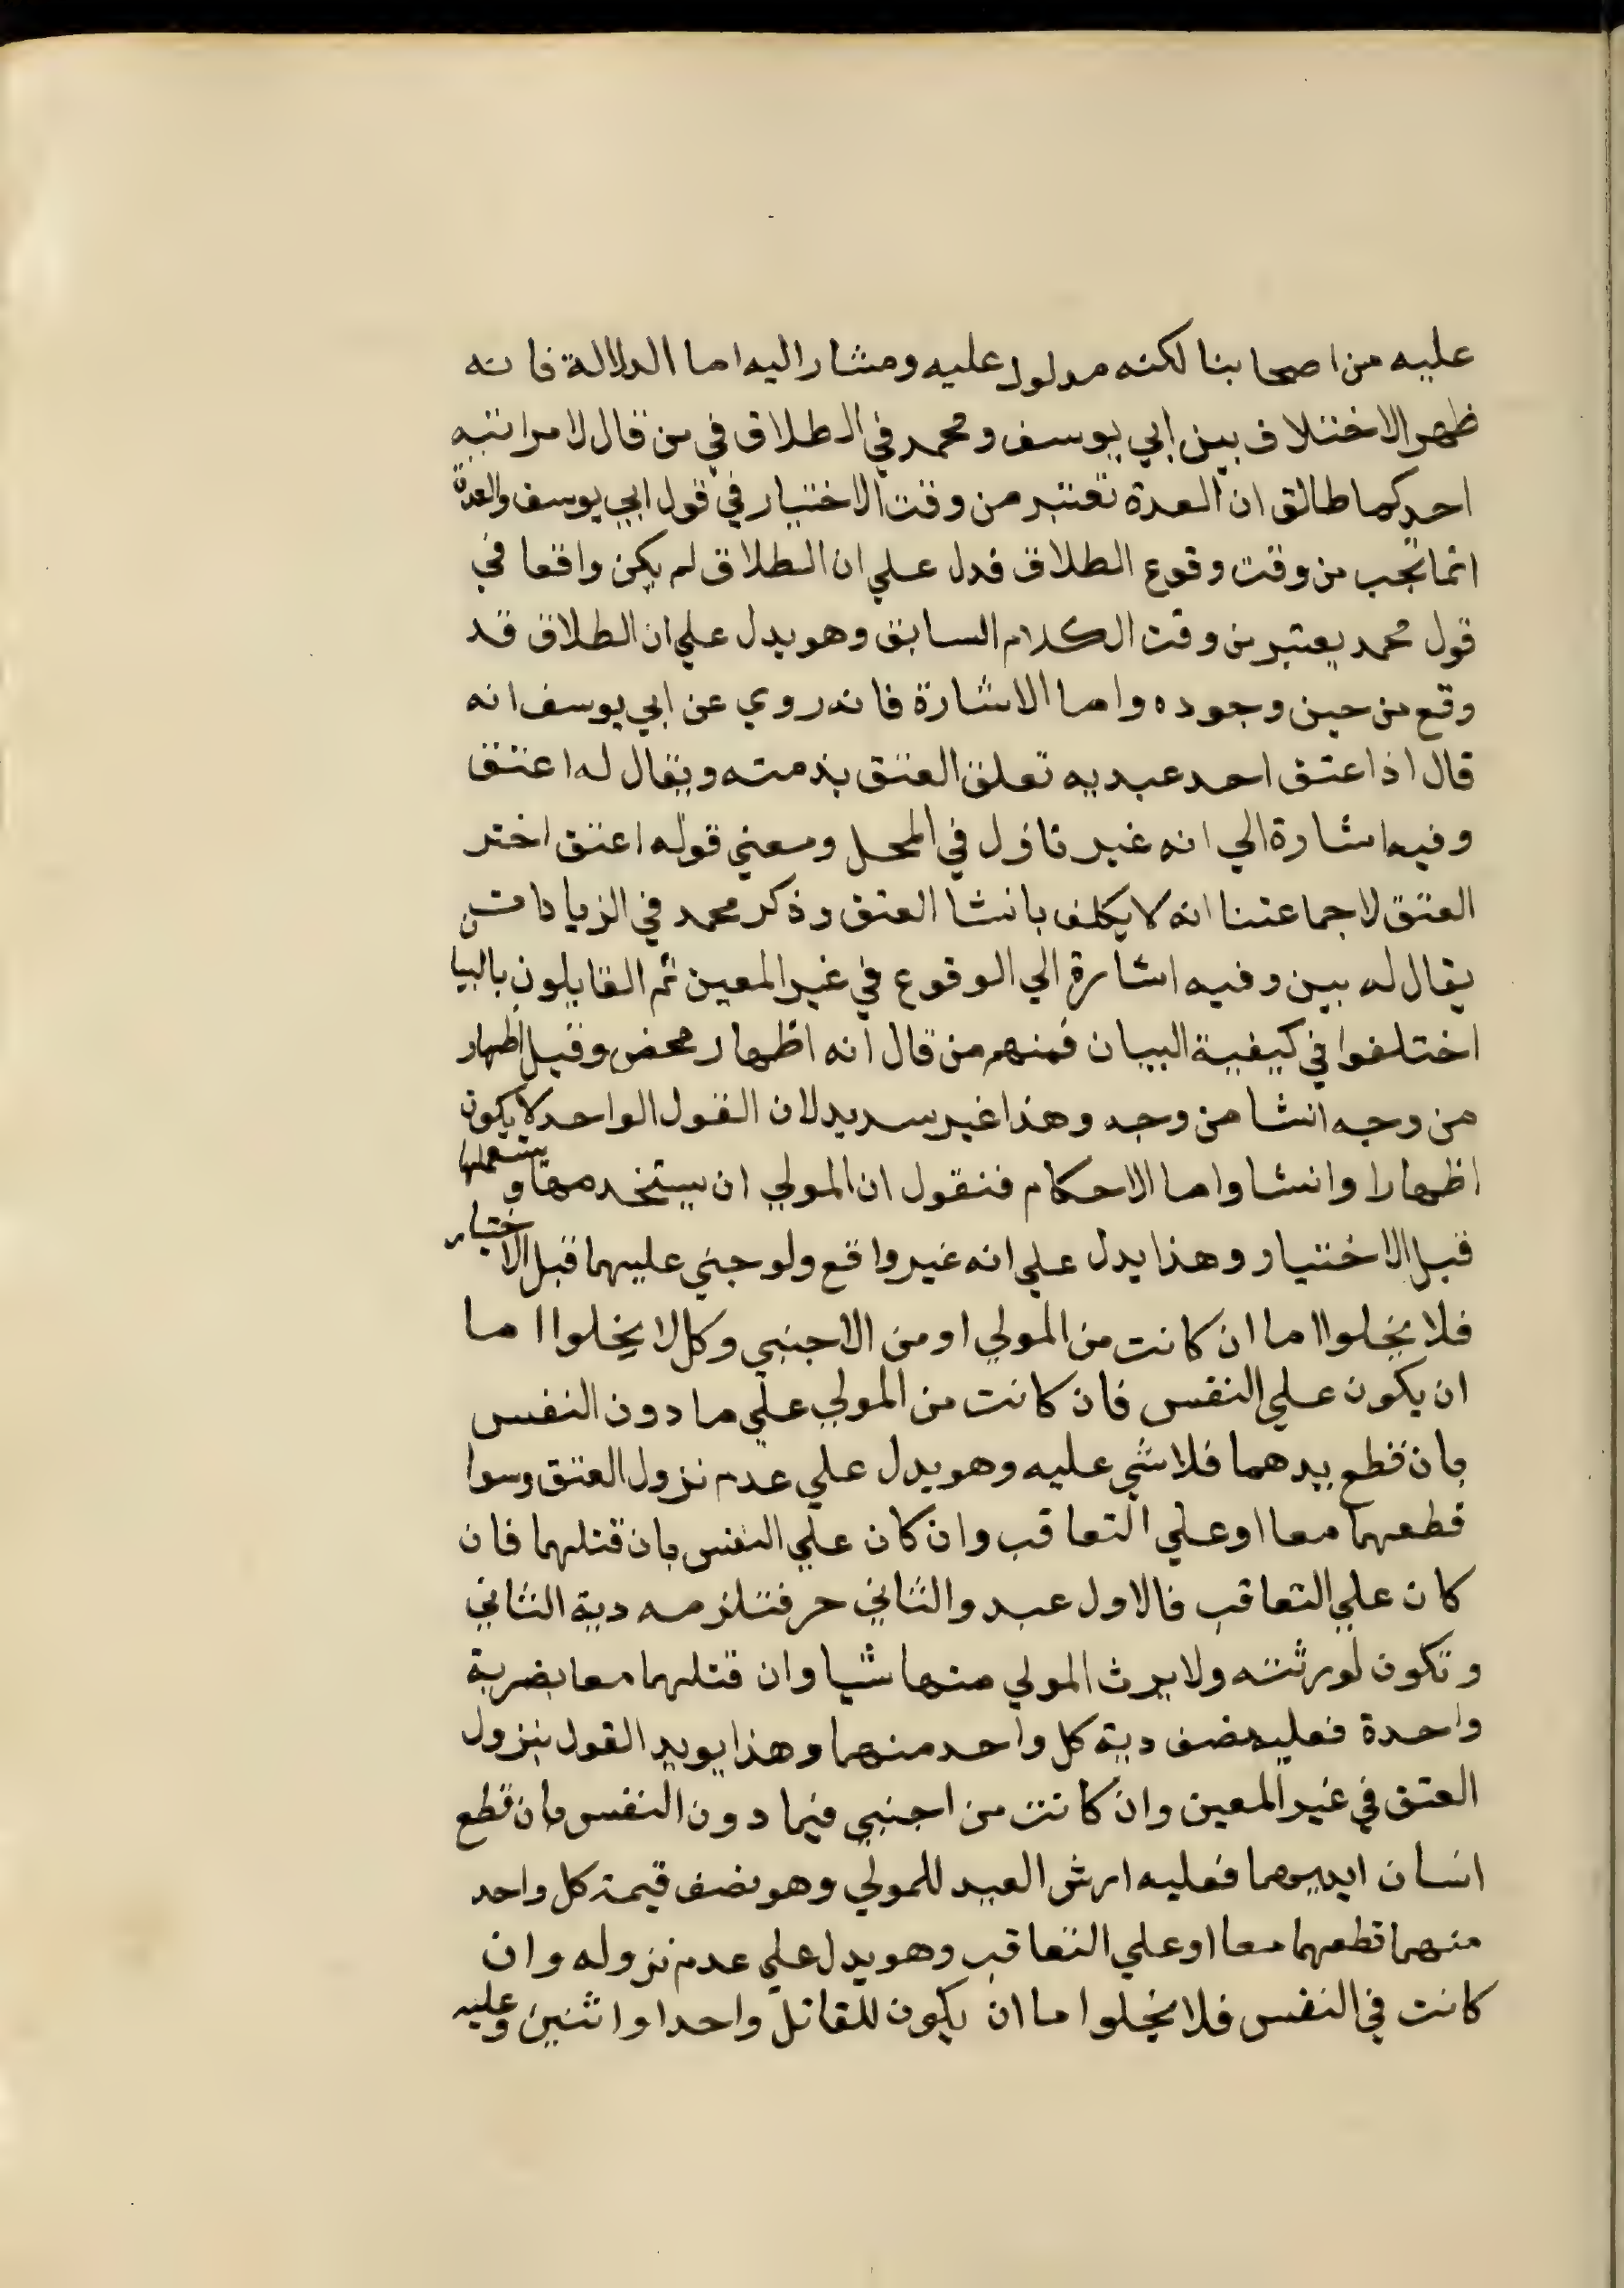 عليه من اصحابنا لكنه مدلول عليه ومشار اليه اما الدلالة فانه
ظهر الاختلاف بين ابي يوسف ومحمد في الطلاق في من قال لامراتيه
احدكما طالق ان العدة تعتبر من وقت الاختيار في قول ابي يوسف والعدة
انما تجب من وقت وقوع الطلاق فدل علي ان الطلاق لم يكن واقعا في
قول محمد يعتبر من وقت الكلام السابق وهو يدل علي ان الطلاق قد
وقع من حين وجوده واما الاشارة فانه روي عن ابي يوسف انه
قال اذا عتق احد عبديه تعلق العتق بذمته ويقال له اعتق
وفيه اشارة الي انه غير نازل في المحل ومعني قوله اعتق اختر
العتق لاجماعتنا انه لا يكلف بانشا العتق وذكر محمد في الزيادات
يقال له بين وفيه اشارة الي الوقوع في غير المعين ثم القايلون بالبيان
اختلفوا في كيفية البيان فمنهم من قال انه اظهار محض وقيل اظهار
من وجه انشا من وجه وهذا غير سديد لان القول الواحد لا يكون
اظهارا وانشا واما الاحكام فنقول ان المولي ان يستخدمها ويستعملها
قبل الاختيار وهذا يدل علي انه غير واقع ولو جني عليهما قبل الاختيار
فلا يخلوا اما ان كانت من المولي او من الاجنبي وكل لا يخلوا اما
ان يكون علي النفس فان كانت من المولي علي ما دون النفس
بان قطع يدهما فلا شي عليه وهو يدل علي عدم نزول العتق وسوا
قطعهما معا او علي التعاقب وان كان علي النفس بان قتلهما فان
كان علي التعاقب فالاول عبد والثاني حر فتلزمه دية الثاني
وتكون لورثته ولا يرث المولي منها شيا وان قتلهما معا بضربة
واحدة فعليه نصف دية كل واحد منهما وهذا يويد القول بنزول
العتق في غير المعين وان كانت من اجنبي فيما دون النفس بان قطع
انسان ايديهما فعليه ارش العبد للمولي وهو نصف قيمة كل واحد
منهما قطعهما معا او علي التعاقب وهو يدل علي عدم نزوله وان
كانت في النفس فلا يخلوا ما ان يكون للقاتل واحدا واثنين وعليه